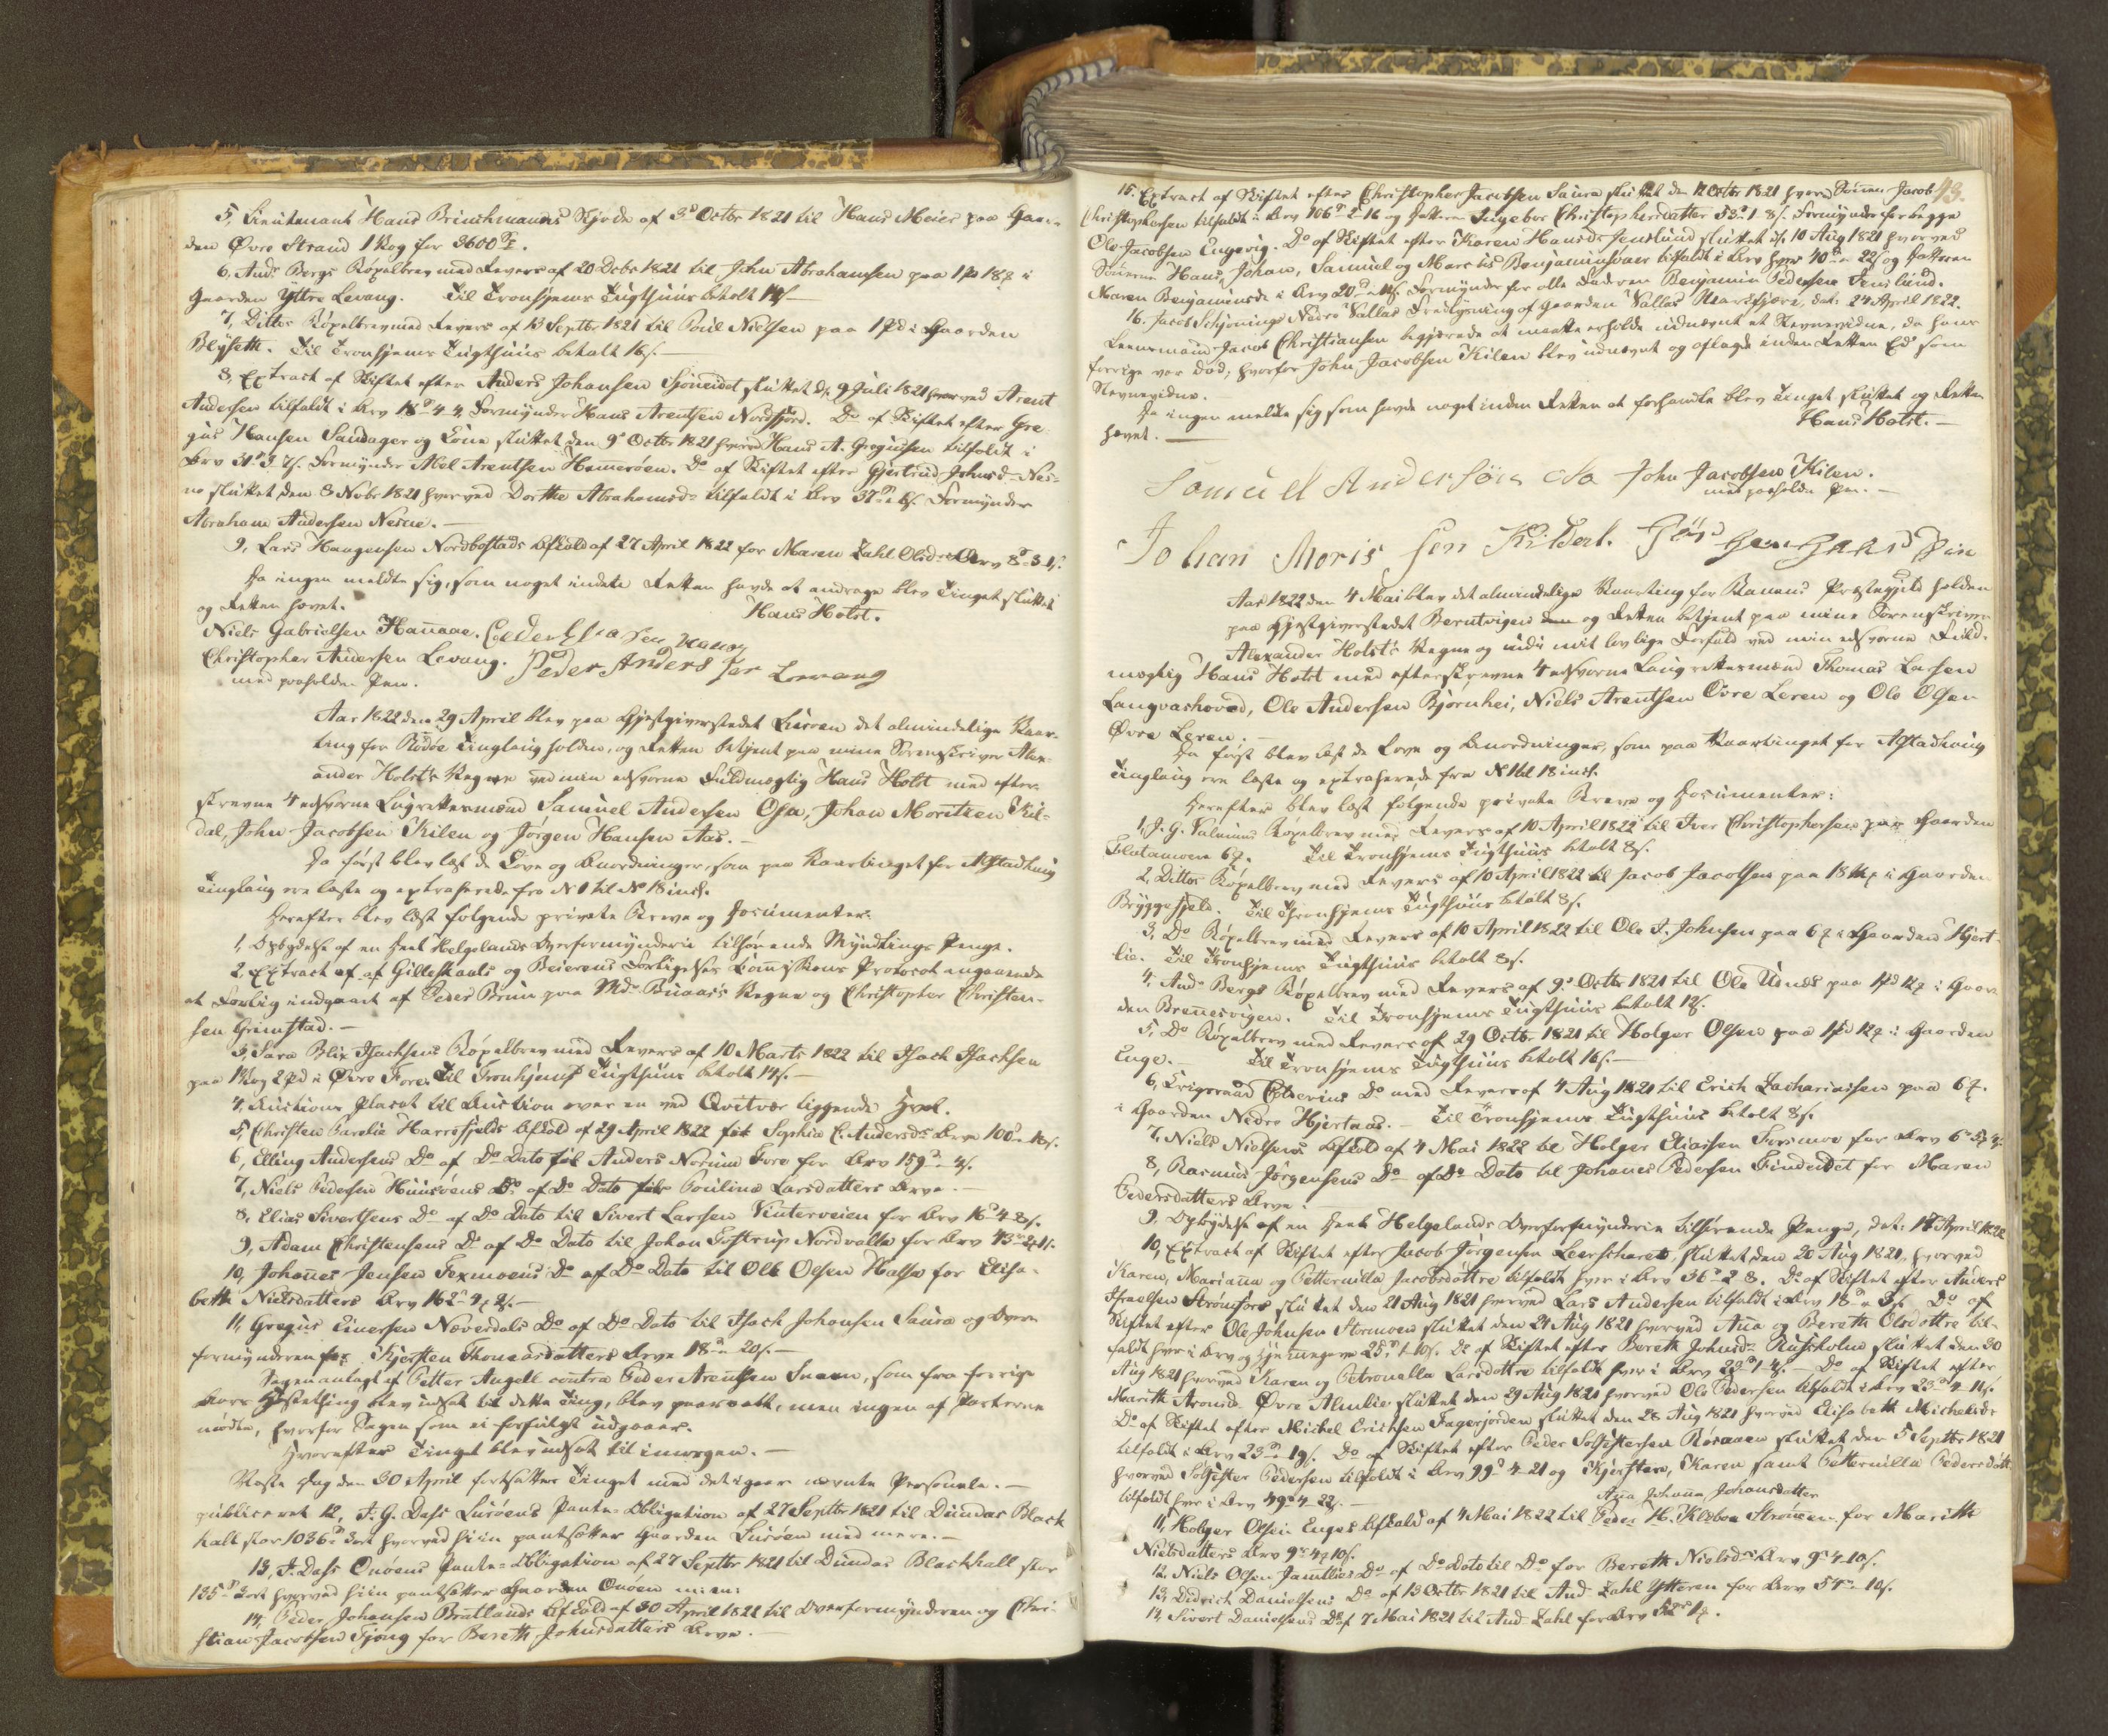 5, Lieutenant Hans Brinchmanns Skjøde af 3d Octbr 1821 til Hans Meier paa Gaar-
den Øvre Strand 1 Vog for 3600
6, Andr Bergs Bøxelbrev med Revers af 20 Decbr 1821 til John Abrahamsen paa 1 pd 18 i
Gaarden Yttre Levang. Til Tronhjems Tugthuus betalt
7, Dittos Bøxelbrev med Revers af 13 Septbr 1821 til Poul Nielsen paa 1 pd i Gaarden
Blysett. Til Tronhjems Tugthuus betalt 16 s.
8, Extract af Skiftet efter Anders Johansen Sjoneidet sluttet d. 9 Juli 1821 hvorved Arent
Andersen tilfaldt i Arv 18 4. Formynder Hans Arentsen Nordfjord. Do af Skiftet efter Gre-
gus Hansen Sandager og Kone sluttet den 9d Octbr 1821 hvorved Hans A. Gregusen tilfaldt i
Arv 31 3 Formynder Abel Arentsen Hemerøen. Do af Skiftet efter Gjertrud Johnsd. Nes-
ne sluttet den 8 Novbr 1821 hvorved Dorthe Abrahamsd. tilfaldt i Arv 37 Formynder
Abraham Andersen Nesne.
9, Lars Haagensen Nordbostads Afkald af 27 April 1822 for Maren Zahl Olsd. Arv
Da ingen meldte sig, som noget inden Retten havde at andrage blev Tinget sluttet
og Retten hævet. Hans Holst.
Niels Gabrielsen Hanaae.
Christopher Andersen Levang. Peder Anders sen Levang
med paaholden Pen.
Aar 1822 den 29 April blev paa Gjestgiverstedet Lurøen det almindelige Vaar-
ting for Rødøe Tinglaug holden, og Retten betjent paa mine Sorenskriver Alex-
ander Holst's Vegne ved min edsvorne Fuldmægtig Hans Holst med efter-
skrevne 4 edsvorne Laugrettesmænd Samuel Andersen Osa, Johan Moritzen Kil-
dal, John Jacobsen Kilen og Jørgen Hansen Aas.
Da først blev læst de Love og Anordninger, som paa Vaartinget for Alstadhoug
Tinglaug ere læste og extraherede fra No 1 til No 18 incl.
Herefter blev læst følgende private Breve og Documenter:
1, Opbydelse af en Deel Helgelands Overformynderie tilhørende Myndlings Penge.
2, Extract af af Gilleskaals og Beierens Forligelses Commissions Protocol angaaende
et Forlig indgaaet af Peder Bruun paa Md. Buaas's Vegne og Christopher Christen-
sen Grimstad.
3, Sara Blix Isachsens Bøxelbrev med Revers af 10 Marts 1822 til Isach Isachsen
paa 1 Vog 2 pd i Øvre Fore. Til Tronhjems Tugthuus betalt 14 s.
4, Auctions Placat til Auction over en ved Qvitvær liggende Hval.
5, Christen Parelie Harrefjelds Afkald af 29 April 1822 for Sophia C. Andersdr Arv 100
6, Elling Andersens Do af Do Dato til Anders Norum Fore for Arv 159
7, Niels Pedersen Huusøens Do af Do Dato for Paulina Larsdatters Arv.
8, Elias Sivertsens Do af Do Dato til Sivert Larsen Vinterveien for Arv 16 4 8 s.
9, Adam Christensens Do af Do Dato til Johan Tostrup Nordvalla for Arv 43
10, Johanes Jensen Texmoens Do af Do Dato til Ole Olsen Halsa for Elisa-
beth Nielsdatters Arv 162
11, Gregus Einersen Næverdals Do af Do Dato til Isach Johansen Saura og Over-
formynderen for Kjersten Thomasdatters Arv 18 20 s.
Sagen anlagt af Petter Angell contra Peder Arentsen Inaaen, som fra forrige
Aars Høstetting blev udsat til dette Ting, blev paaraabt, men ingen af Parterne
mødte, hvorfor Sagen som ei forfulgt udgaaer.
Hvorefter Tinget blev udsat til imorgen.
Næste Dag den 30 April fortsattes Tinget med det igaar nævnte Personale.
publiceret 12, J. G. Dass Lurøens Pante-Obligation af 27 Septbr 1821 til Dundas Black
hall stor 1036 hvorved hiin pantsætter Gaarden Lurøen med mere.
13, J. Dass Onøens Pante-Obligation af 27 Septbr 1821 til Dundas Blackhall stor
135 hvorved hiin pantsætter Gaarden Onøen m: m:
14, Peder Johansen Bratlands Afkald af 30 April 1822 til Overformynderen og Chri-
stian Jacobsen Tjong for Bereth Johnsdatters Arv.
43.
15. Extract af Skiftet efter Christopher Jacobsen Saura sluttet den 12 Octbr 1821 hvorved Sønnen Jacob
Christophersen tilfaldt i Arv 106 2 16 og Datteren Ingebor Christophersdatter 53 1 8 s. Formynder for begge
Ole Jacobsen Engevig. Do af Skiftet efter Karen Hansdr Jenslund sluttet d. 10 Aug 1821 hvorved
Sønnerne Hans, Johan, Samuel og Marelius Benjaminsønner tilfaldt i Arv hver 40 22 s og Datteren
Maren Benjaminsdr i Arv 20 Formynder for alle Faderen Benjamin Pedersen Jenslund.
16. Jacob Schjønings Nedre Vallas Fredlysning af Gaarden Vallas dat. 24 April 1822.
Leensmand Jacob Christiansen begjerede at maatte erholde udnævnt et Stevnevidne, da hans
forrige var død; hvorfor John Jacobsen Kilen blev udnævnt og aflagde inden Retten Ed som
Stevnevidne.
Da ingen meldte sig som havde noget inden Retten at forhandle blev Tinget sluttet og Retten
hævet. Hans Holst.
Samuel Andersøn Osa John Jacobsen Kilen.
med paaholden Pen.
Johan Moris sen Kildal.
Aar 1822 den 4 Mai blev det almindelige Vaarting for Ranens Præstegjeld holden
paa Gjestgiverstedet Berntvigen og Retten betjent paa mine Sorenskriver
Alexander Holst's Vegne og udi mit lovlige Forfald ved min edsvorne Fuld-
mægtig Hans Holst med efterskrevne 4 edsvorne Laugrettesmænd Thomas Larsen
Langvashoved, Ole Andersen Bjørnhei, Niels Arentsen Øvre Leren og Ole Olsen
Øvre Leren.
Da først blev læst de Love og Anordninger, som paa Vaartinget for Alstadhoug
Tinglaug ere læste og extraherede fra No 1 til 18 incl.
Herefter blev læst følgende private Breve og Documenter:
1, J. G. Bøxelbrev med Revers af 10 April 1822 til Iver Christophersen paa Gaarden
Flatamoen 6. Til Tronhjems Tugthuus betalt 8 s.
2, Dittos Bøxelbrev med Revers af 10 April 1822 til Jacob Jacobsen paa 18 i Gaarden
Bryggefjeld. Til Tronhjems Tugthuus betalt 8 s.
3, Do Bøxelbrev med Revers af 10 April 1822 til Ole J. Johnsen paa 6 i Gaarden Hjert-
lie. Til Tronhjems Tugthuus betalt 8 s.
4, Andr Bergs Bøxelbrev med Revers af 9d Octbr 1821 til Ole paa 1 pd 12 i Gaar-
den Brenesvigen. Til Tronhjems Tugthuus betalt 12 s.
5, Do Bøxelbrev med Revers af 29 Octbr 1821 til Holger Olsen paa 1 pd 12 i Gaarden
Enge. Til Tronhjems Tugthuus betalt 16 s.
6, Krigsraad Do med Revers af 4 Aug 1821 til Erich Zachariassen paa 6
i Gaarden Nedre Hjertaas. Til Tronhjems Tugthuus betalt 8 s.
7, Niels Nielsens Afkald af 4 Mai 1822 til Holger Eliassen Forsmoe for Arv 6
8, Rasmus Jørgensens Do af Do Dato til Johanes Pedersen Findeidet for Maren
Pedersdatters Arv.
9, Opbydelse af en Deel Helgelands Overformynderie tilhørende Penge, dat. 17 April 1822
10, Extract af Skiftet efter Jacob Jørgensen sluttet den 20 Aug 1821, hvorved
Karen, Mariana og Petternilla Jacobsdøttre tilfaldt hver i Arv 36 2 8. Do af Skiftet efter Anders
Israelsen Strømfors sluttet den 21 Aug 1821 hvorved Lars Andersen tilfaldt i Arv 18 Do af
Skiftet efter Ole Johnsen Stormoen sluttet den 24 Aug 1821 hvorved Ana og Bereth Olsdøttre til-
faldt hver i Arv og Hjemmegave 25 1 10 s. Do af Skiftet efter Bereth Johnsdr Rusholm sluttet den 30
Aug 1821 hvorved Karen og Petronella Larsdøttre tilfaldt hver i Arv 22 Do af Skiftet efter
Marith Aronsdr Øvre Almlie sluttet den 29 Aug 1821 hvorved Ole Pedersen tilfaldt i Arv 23 4 11 s.
Do af Skiftet efter Michel Erichsen Fagerjorden sluttet den 28 Aug 1821 hvorved Elisabeth Michelsdr
tilfaldt i Arv 23 19 s. Do af Skiftet efter Peder Solfestersen Røsaaen sluttet den 5 Septbr 1821
hvorved Solfester Pedersen tilfaldt i Arv 99 4 21 og Kjersten, Karen samt Petternilla Pedersdøttre
tilfaldt hver i Arv 49 4 22 s. Ana Johana Johansdatter
11, Holger Olsen Enges Afkald af 4 Mai 1822 til Peder H. Klæboe Strømen for Marith
Nielsdatters Arv 9 4 10 s.
12, Niels Olsen Jamtlies Do af Do Dato til Do for Bereth Nielsdrs Arv 9 4 10 s.
13, Didrich Danielsens Do af 13 Octbr 1821 til And. Zahl Ytteren for Arv 54 10 s.
14, Sivert Danielsens Do af 7 Mai 1821 til And. Zahl for Arv